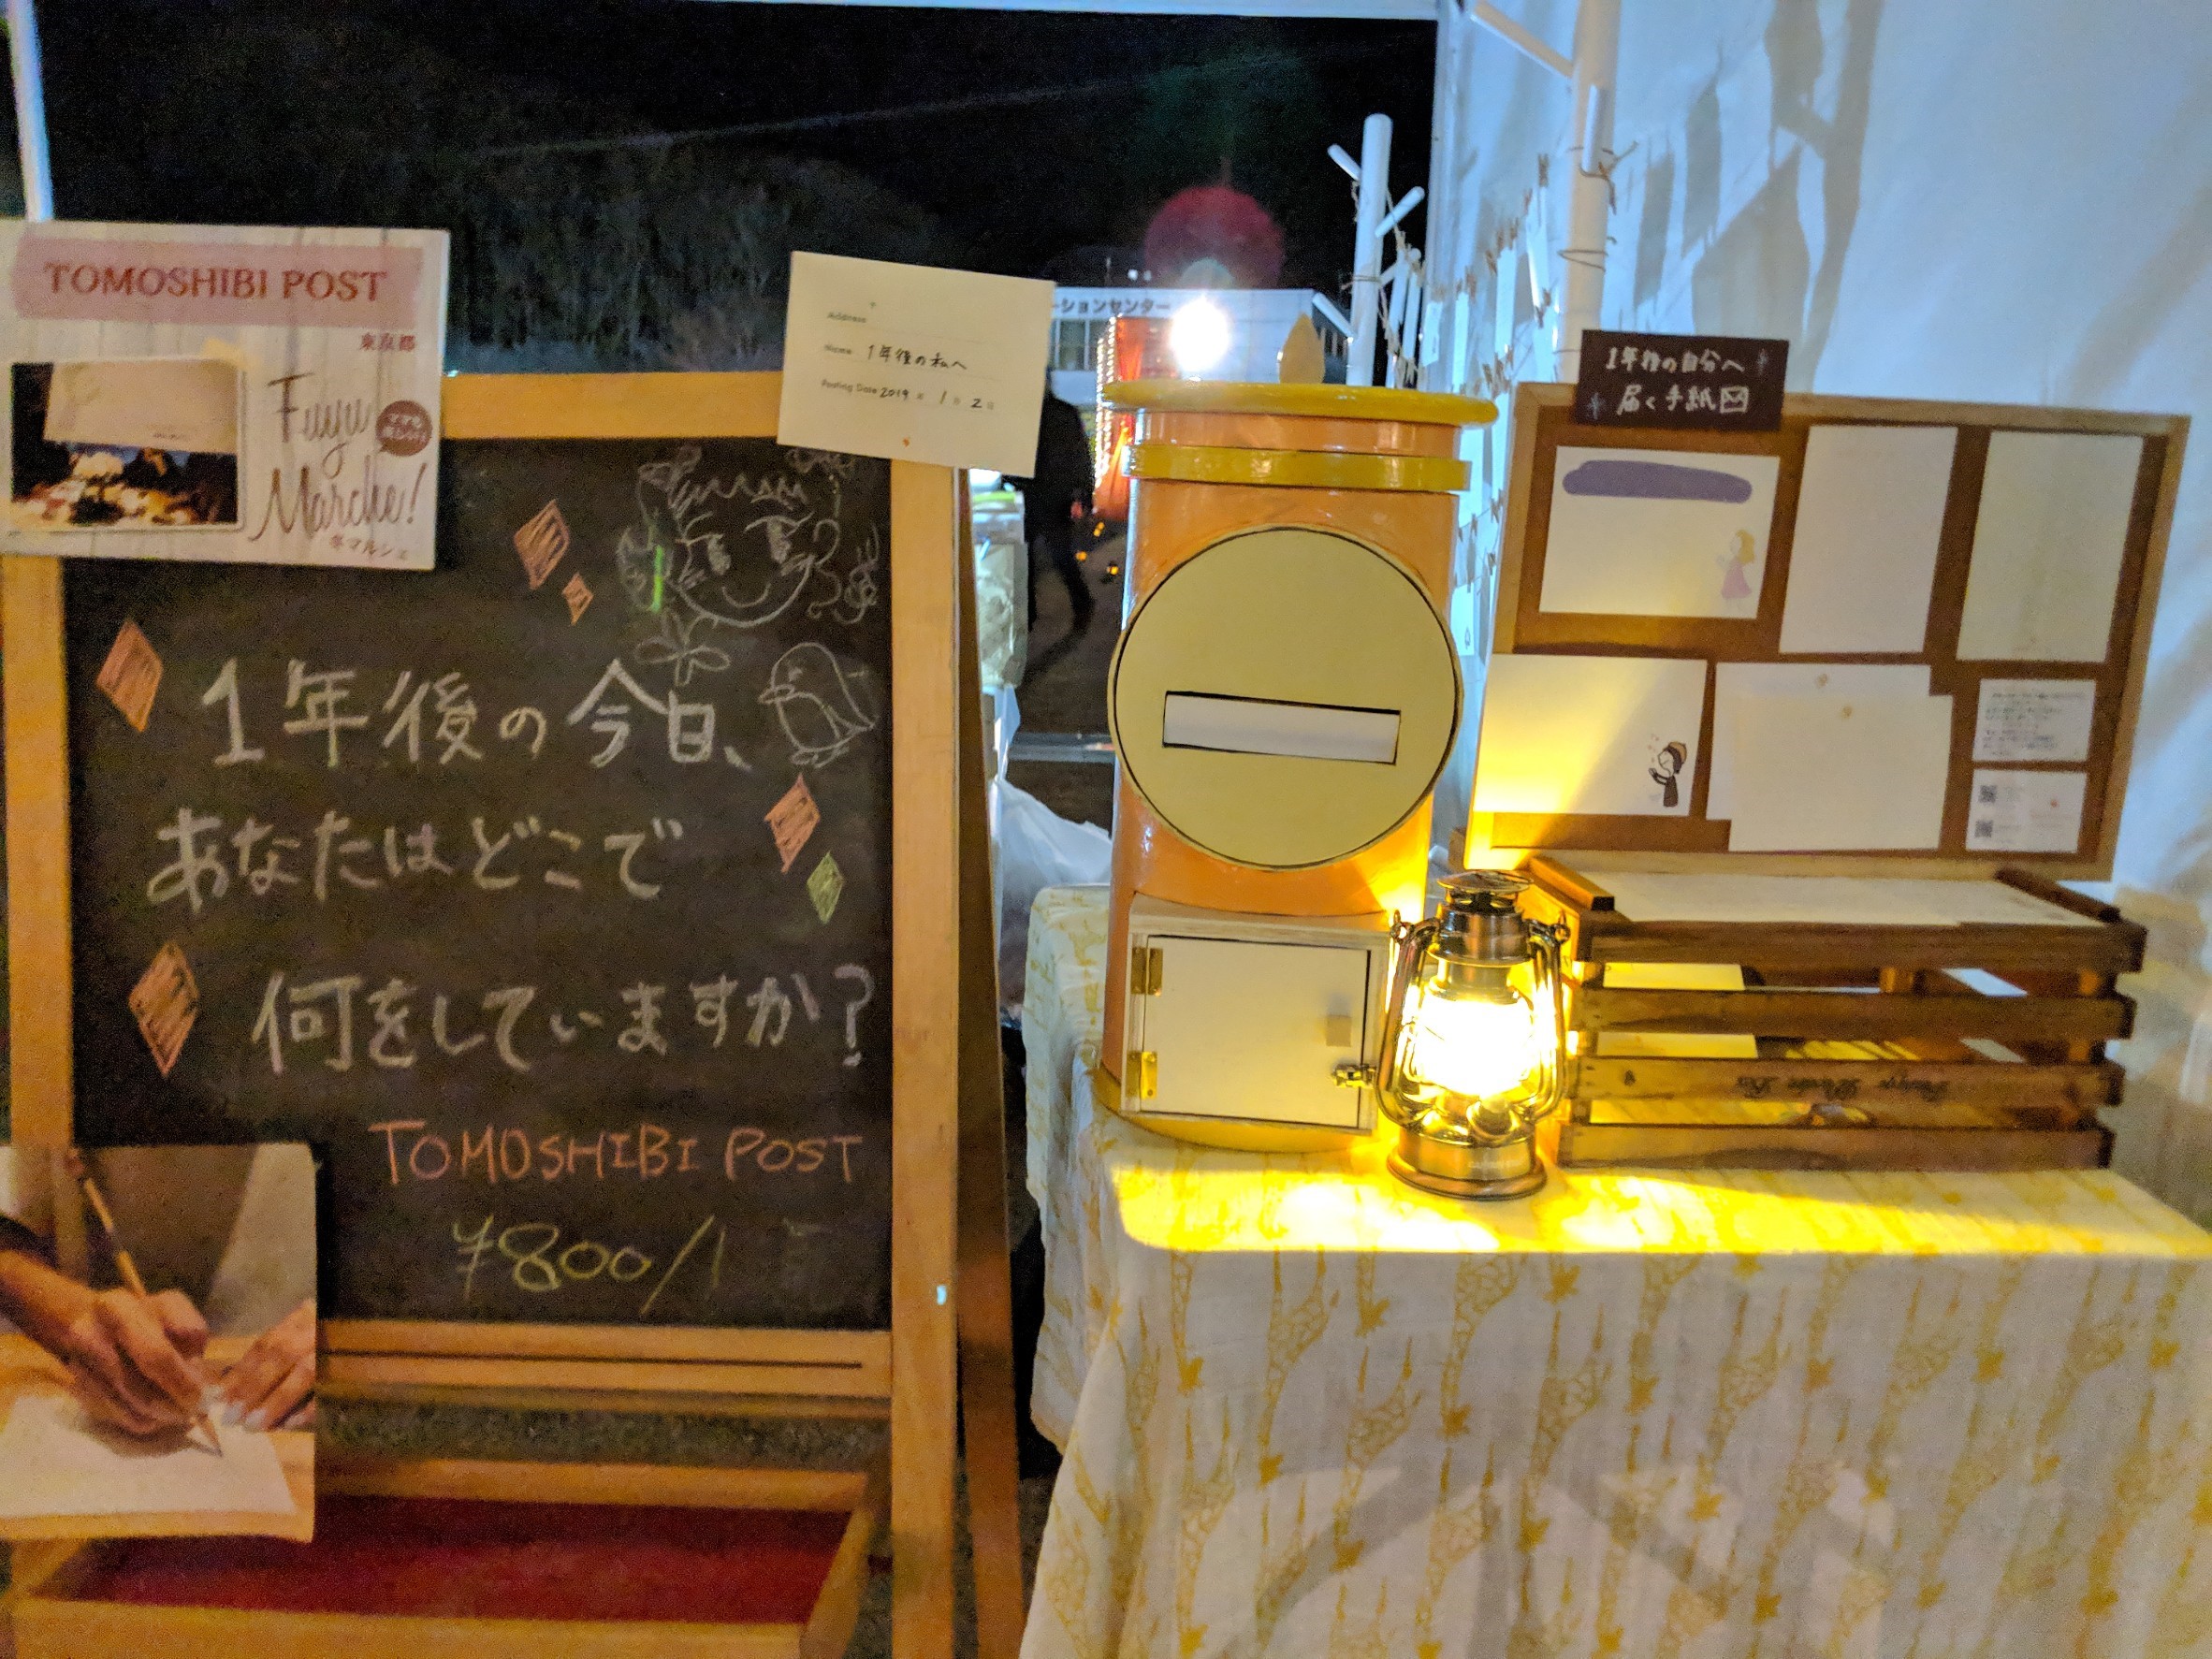 TOMOSHIBI POST
東京都
Fuyu
Marche!
冬マルシェ
Address
Name 1年後の私へ
Posting Date 2019年 1月 2日
ーションセンター
1年後の自分へ
届く手紙
1年後の今日、
あなたはどこで
何をしていますか?
TOMOSHIBI POST
¥800/1